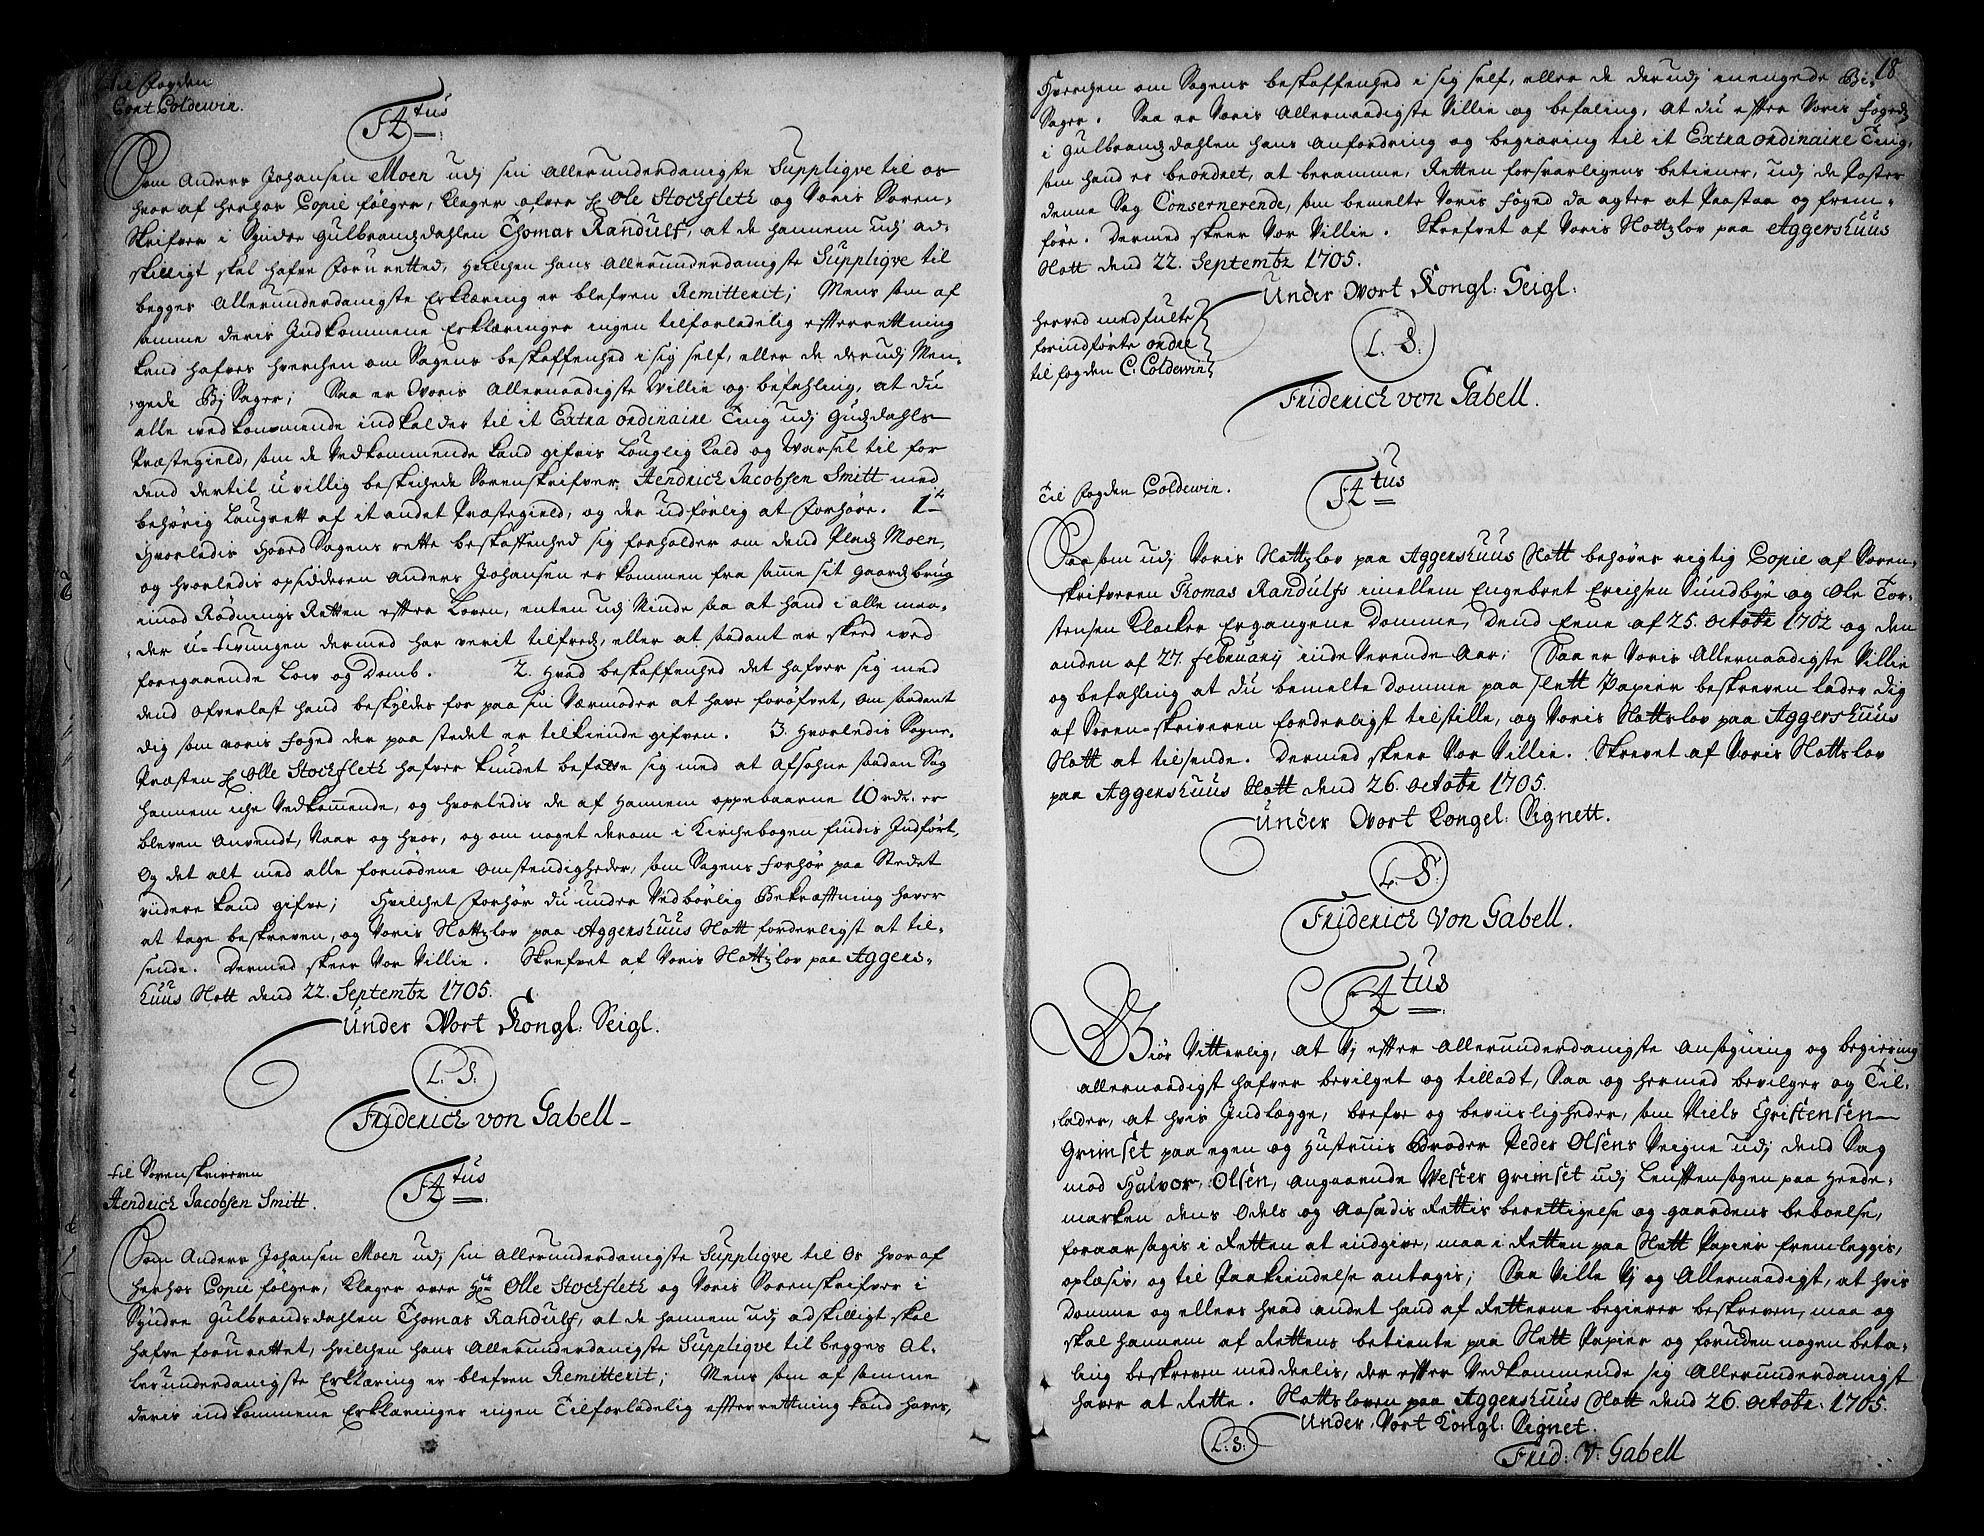 Til fogden
Cort Coldewin.
F4tus
Som Anders Johansen Moen udj sin Allerunderdanigste Suppliqve til os
hvor af herhos Copie følger, klager ofver Hr Ole Stockfleth og Voris Soren-
skrifver i Syndre Gulbrandzdahlen Thomas Randulf, at de hannem udj ad-
skilligt skal hafve foruretted, hvilchen hans Allerunderdanigste Suppliqve til
begges Allerunderdanigste Erklæring er blefven Remitterit; Mens som af
samme deris Indkommene Erklæringer ingen tilforladelig efterretning
kand hafves hverchen om Sagens beskaffenhed i sig self, eller de derudj Men-
gede Bj Sager; Saa er Voris Allernaadigste Villie og befahling, at du
alle wedkommende indkalder til it Extra ordinaire Ting udj Gulzdahls
Præstegield, som de Vedkommende kand gifvis Louglig Kald og Warsel til for
dend dertil uvillig beskichede Sorenskrifver, Hendrich Jacobsen Smitt med
behörig Laugrett af it andet Præstegield, og der udførlig at forhöre. 1.
Hvorledis Hoved Sagens rette beskaffenhed sig forholder om dend Pladz Moen,
og hvorledis opsidderen Anders Johansen er kommen fra samme sit gaardzbrug
imod Rødnings Retten efter Loven, enten udj Minde saa at hand i alle maa-
der u-tvungen dermed har verit tilfredz, eller at sadant er skeed wed
foregaaende Low og Domb. 2. Hvad beskaffenhed det hafver sig med
dend Ofverlast hand beskyldes for paa sin Værmoder at have forøfvet, om sadant
dig som voris foged der paa stedet er tilkiende gifven. 3. Hvorledis Sogne-
Præsten Hr Olle Stockfleth hafver kundet befatte sig med at Afsohne sadan Sag
hannem iche Vedkommende, og hvorledis de af hannem oppebaarne 10 rdr. er
bleven Anvendt, Naar og hvor, og om noget derom i Kirchebogen findis Indført,
Og det alt med alle fornödene Omstendigheder, som Sagens forhør paa Stedet
viidere kand gifve; Hvilchet forhør du under Vedbörlig Bekræftning haver
at tage beskreven, og Voris Slottzlov paa Aggershuus Slott forderligst at til-
sende. Dermed skeer Vor Villie. Skrefvet af Voris Slottzlov paa Aggers-
huus Slott dend 22. Septembr 1705.
Under Vort Kongl: Seigl.
L. S:
Friderich von Gabell
til Sorenskriveren
Hendrich Jacobsen Smitt.
F4tus
Som Anders Johansen Moen udj sin Allerunderdanigste Suppliqve til Os hvor af
herhos Copie følger, klager over Hr Olle Stockfleth og Voris Sorenskrifver i
Syndre Gulbrandsdahlen Thomas Randulf, at de hannem udj adskilligt skal
hafve forurettet, hvilchen hans Allerunderdanigste Suppliqve til begges Al-
lerunderdanigste Erklæring er blefven Remitterit; Mens som af samme
deris indkommene Erklæringer ingen Tilforladelig efterretning kand haves,
18
Hverchen om Sagens beskaffenhed i sig self, eller de derudj mengede Bi-
Sager. Saa er Voris Allernaadigste Villie og befaling, at du efter Voris foged
i Gulbrandzdahlen hans Anfordring og begiæring til it Extra ordinaire Ting,
som hand er beordret, at beramme, Retten forsvarligens betiener, udj de Poster
denne Sag Consernerende, som bemelte Voris foged da agter at Paastaa og frem-
före. Dermed skeer Vor Villie. Skrefvet af Voris Slottzlov paa Aggershuus
Slott dend 22. Septembr 1705.
Under Vort Kongl: Seigl:
herved medfulte
forindførte ordre
til fogden C. Coldewin
L. S:
Friderich von Gabell.
Til fogden Coldewin.
F4tus
Saasom udj Voris Slottzlov paa Aggershuus Slott behöves rigtig Copie af Soren-
skrifveren Thomas Randulfs imellem Engebret Erichsen Sundbye og Ole Tor-
stensen Klocker Ergangene Domme, Dend Eene af 25. octobr 1702 og den
anden af 27. february inde Verende Aar; Saa er Voris Allernaadigste Villie
og befahling at du bemelte Domme paa slett Papier beskreven lader dig
af Soren-skriveren forderligst tilstille, og Voris Slottslov paa Aggershuus
Slott at tilsende. Dermed skeer Vor Villie. Skrevet af Voris Slottslov
paa Aggershuus Slott dend 26. octobr 1705.
Under Vort Kongel: Signett.
L. S:
Friderich Von Gabell.
F4tus
Giör Vitterlig, at Vj efter allerunderdanigste ansögning og begiering
allernaadigst hafver bevilget og tilladt, Saa og hermed bevilger og Til-
lader, at hvis Indlægge, brefve og beviisligheder, som Niels Christensen
Grimset paa egen og Hustruis Broder Peder Olsens Veigne udj dend Sag
mod Halvor Olsen, angaaende Vester Grimset udj Leuthensogen paa Hede-
marken dens Odels og Aasædis Rettis berettigelse og gaardens beboelse,
foraarsagis i Retten at indgive, maa i Retten paa Slett Papier fremleggis,
oplæsis, og til Paakiendelse antagis; Saa Ville Vj og Allernaadigst, at hvis
Domme og ellers hvad andet hand af Retterne begierer beskreven, maa og
skal hannem af Rettens betiente paa Slett Papier og foruden nogen beta-
ling beskreven meddeelis, der efter Vedkommende sig Allerunderdanigst
haver at Rette. Slottsloven paa Aggershuus Slott dend 26. octobr: 1705.
Under Vort Kongl: Signet.
L. S:
Frid: V: Gabell